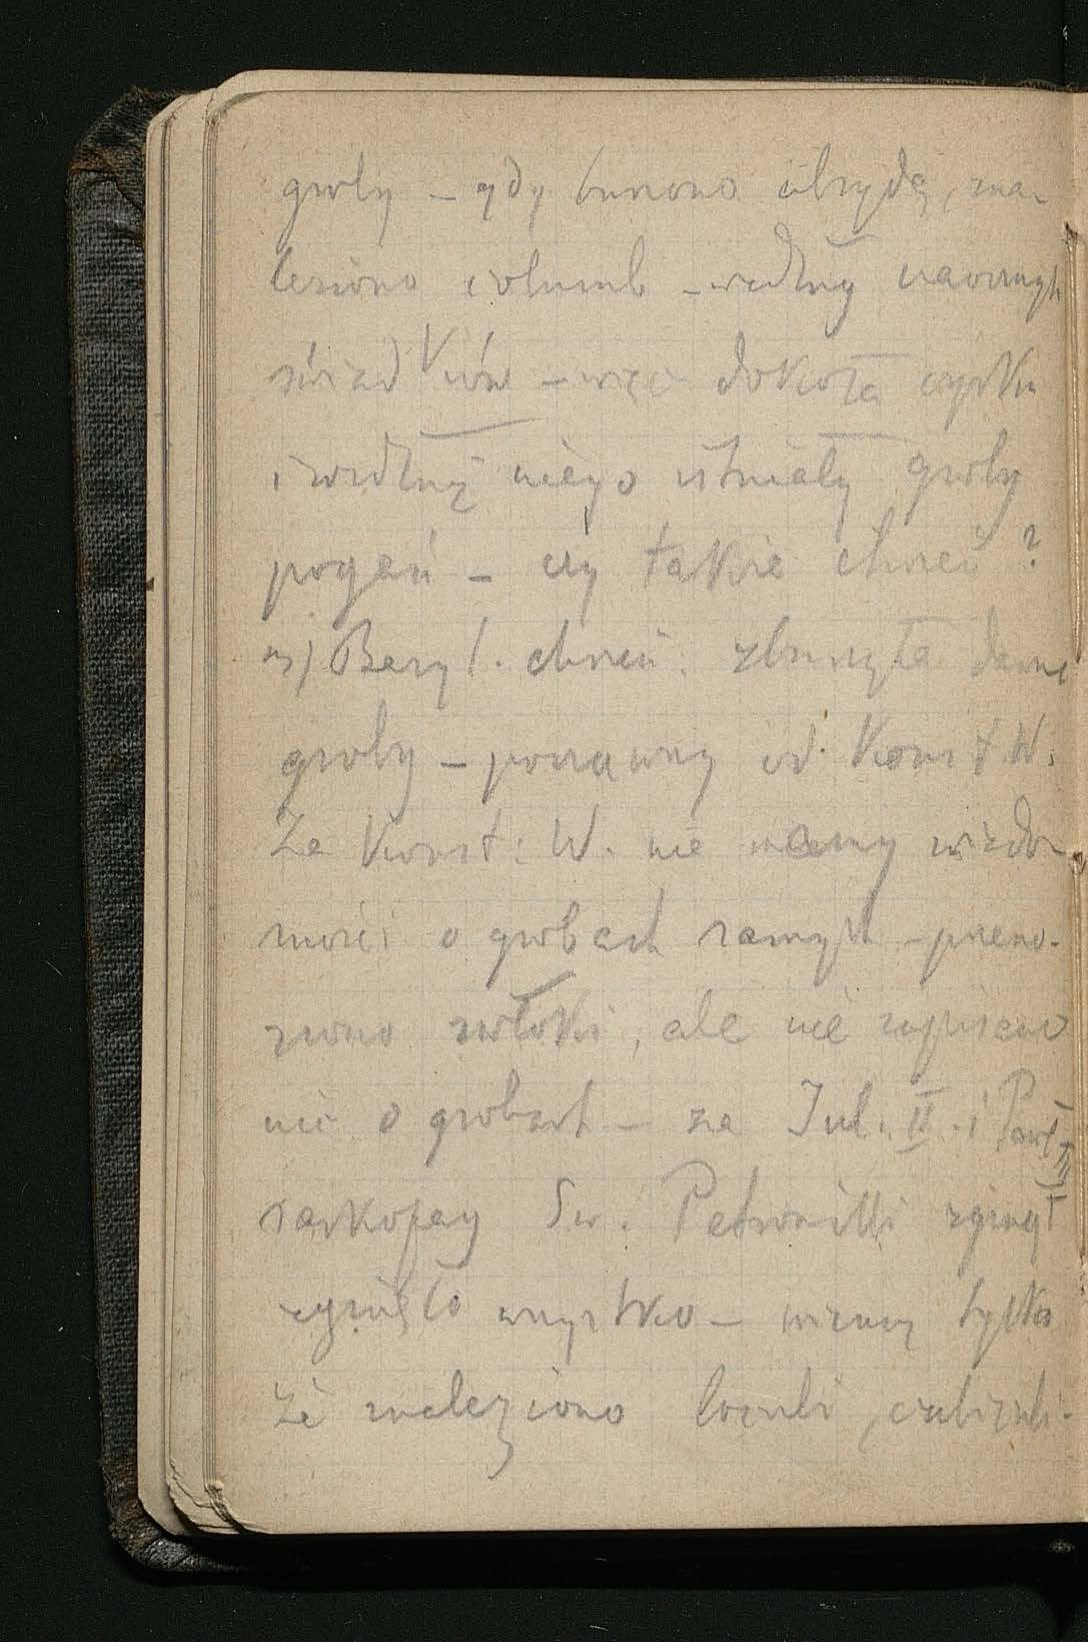 groby – gdy burzono absydę, zna-
leziono columb – według naocznych
świadków – więc dokoła cyrku
i według niego istniały groby
pogań – czy także chrześ?
3) Bazyl. chrześ. zburzyła dawne
groby – począwszy od Konst W.
Za Konst: W. nie mamy wiado-
mości o grobach samych – przeno-
szono zwłoki, ale nie zapisano
nic o grobach – za Jul. II. i Pawł III
sarkofag Sw. Petronilli zginął
zginęło wszystko – wiemy tylko
że znaleziono loculi, cubiculi-